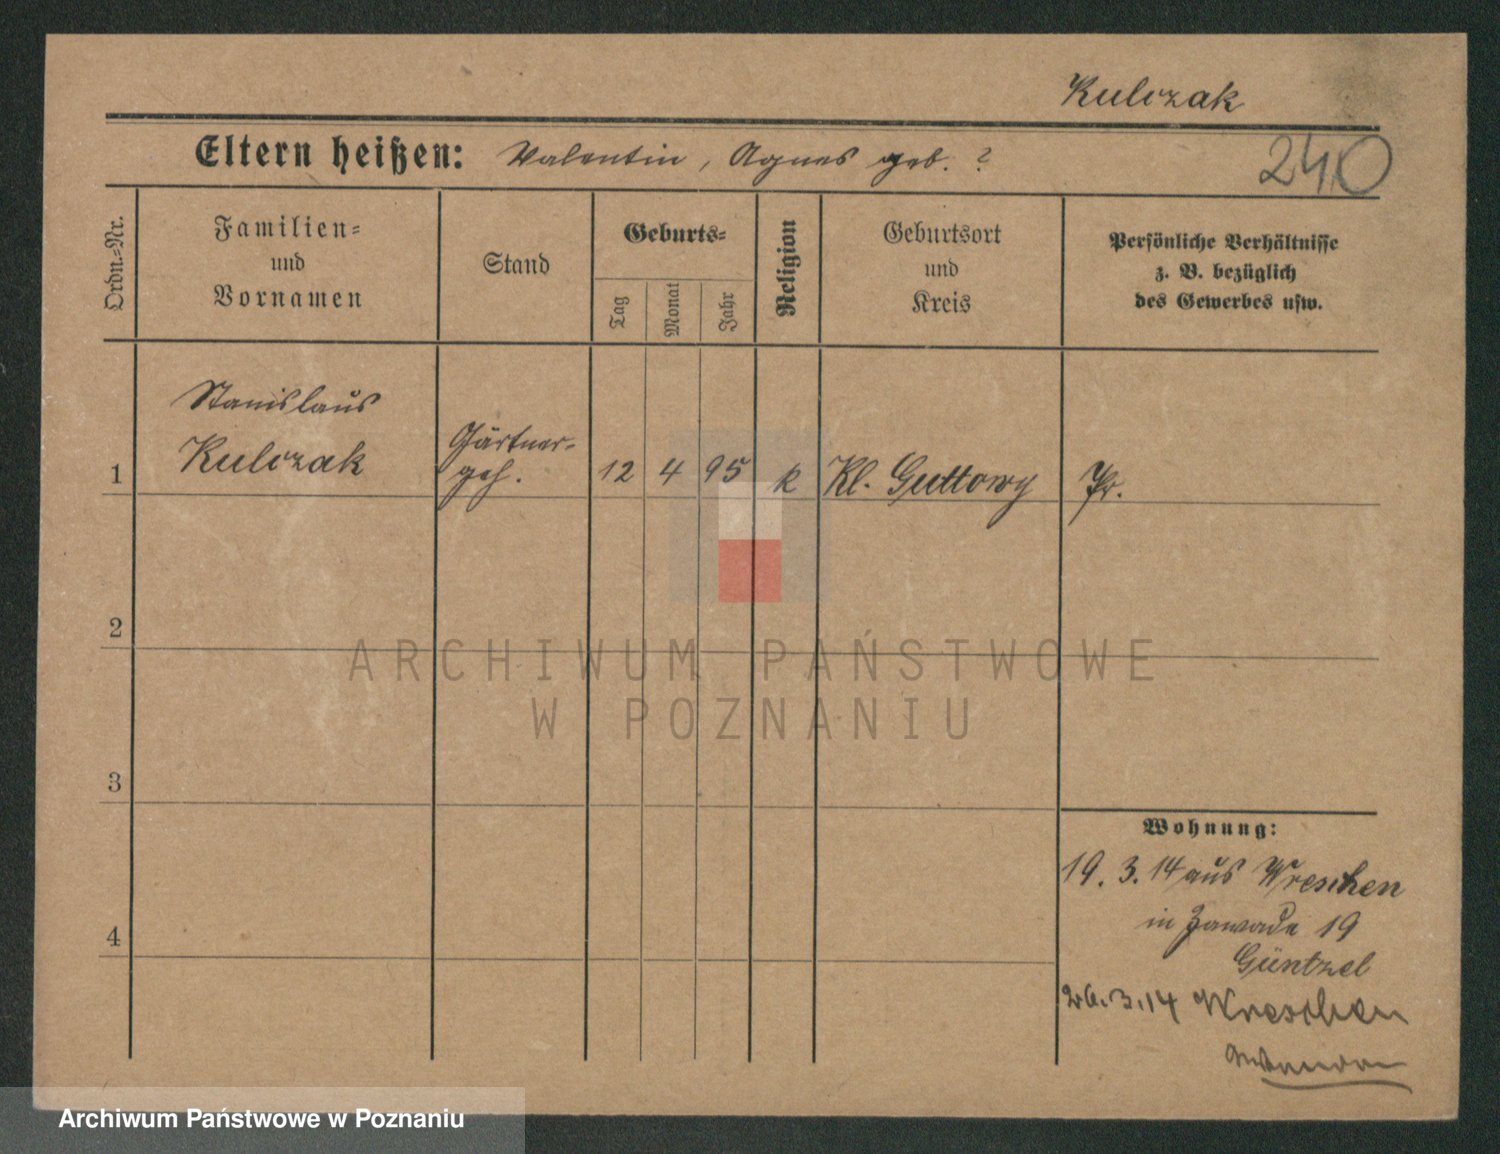 Kulczak
Eltern heißen: Valentin, Agnes geb. ?
240
Ordn.=Nr.
Familien=
und
Vornamen
Stand
Geburts=
Tag
Monat
Jahr
Religion
Geburtsort
und
Kreis
Persönliche Verhältnisse
z. B. bezüglich
des Gewerbes usw.
1
Stanislaus
Kulczak
Gärtner-
geh.
12 4 95 k Kl. Guttowy Pr.
2
ARCHIWUM PAŃSTWOWE
W POZNANIU
3
Wohnung:
19. 3. 14 aus Wreschen
in Zawade 19
Güntzel
4
26.3.14 Wreschen
Archiwum Państwowe w Poznaniu